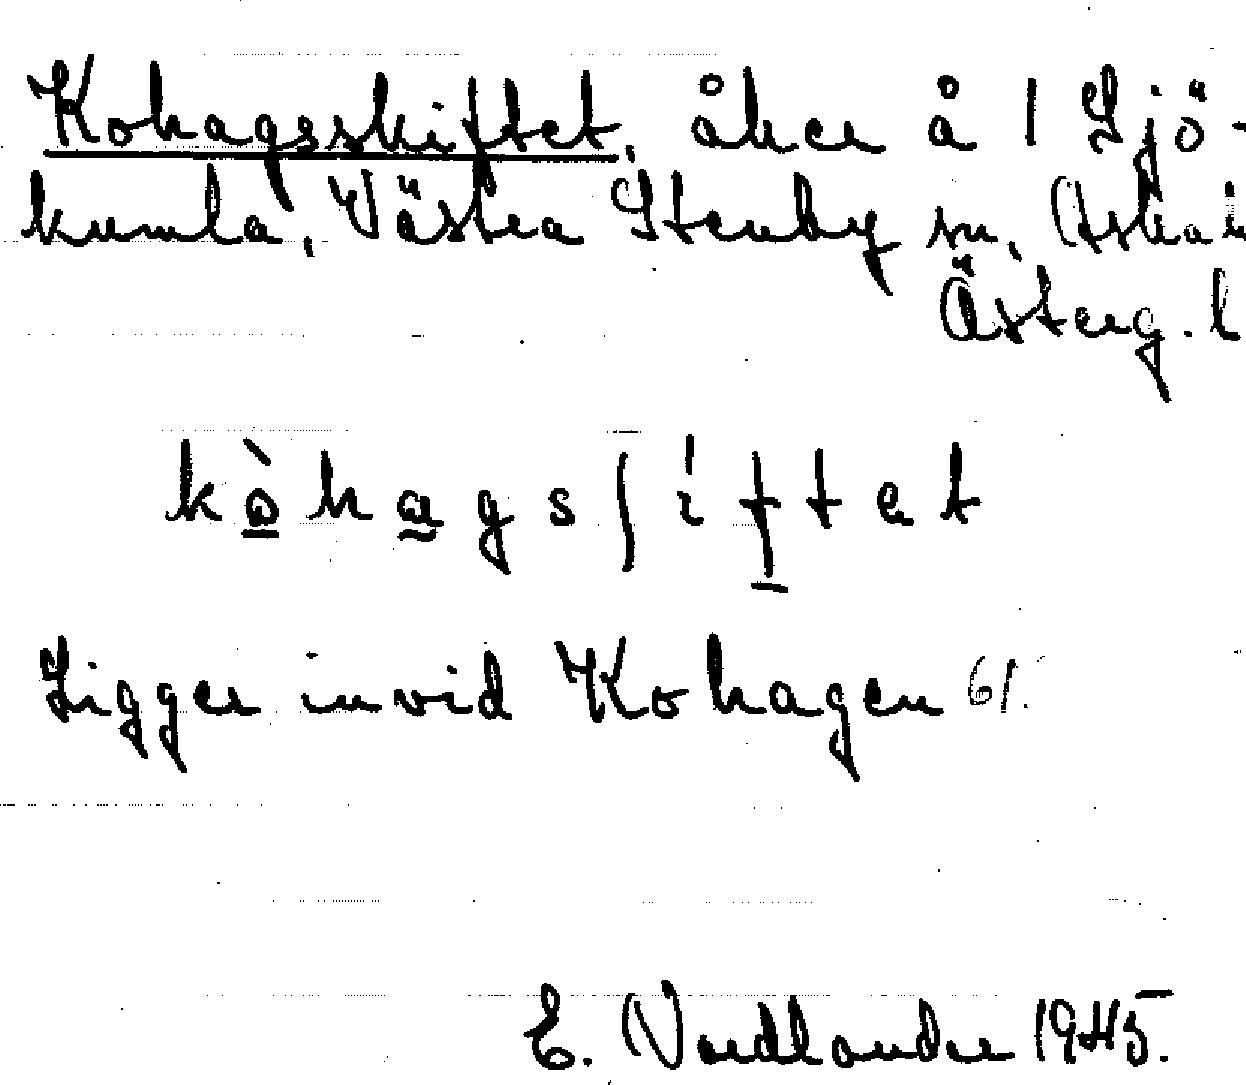 Kohagsskiftet, åker å 1 Sjö-
kumla, Västra Stenby sn, Aska h
Österg. l
kòhagsʃiftet
Ligger invid Kohagen 61.
E. Nordlander 1945.